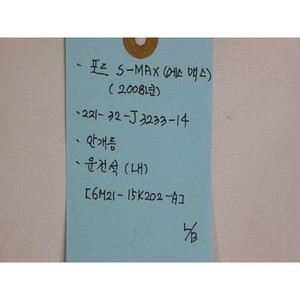 - 포드 S-MAX (에스 맥스)
(2008년)
- 221-32-J3233-14
- 안개등
- 운전석 (내)
[6M21-15K202-A]
L/B